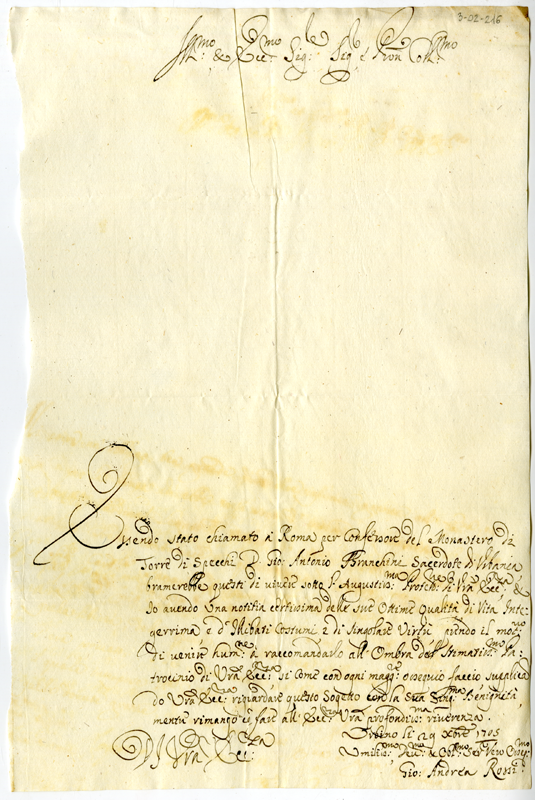 3-02-216
Ill:mo & Ecc:mo Sig:re Sig:re e Pron Coll:mo
Essendo stato chiamato à Roma per Confessore del Monastero di
Torre di Specchi Gio: Antonio Branchini Sacerdote d'Urbania
bramerebbe questi di vivere sotto l'Augustiss:ma Protet:ne di Vra Ecc:za, &
Io avendo una notitia certissima delle sue Ottime Qualità di Vita Inte-
gerrima e d'Illibati Costumi e di singolare Virtù prendo il mot:vo
di venire hum:te à raccomandarlo all'Ombra dell'Stimatiss:mo Pa-
trocinio di Vra Ecc:za; si come con ogni magg:re ossequio faccio suplican
do Vra Ecc:za riguardare questo Sogetto con la sua Benignità,
mentre rimango co' fare all'Ecc:za Vra profondiss:ma riverenza.
Urbino li 29 Xbre 1705
Di Vra Ecc:za
Umiliss:mo Dev:mo & Obl:mo Ser Vero Osseq:mo
Gio: Andrea Rossi